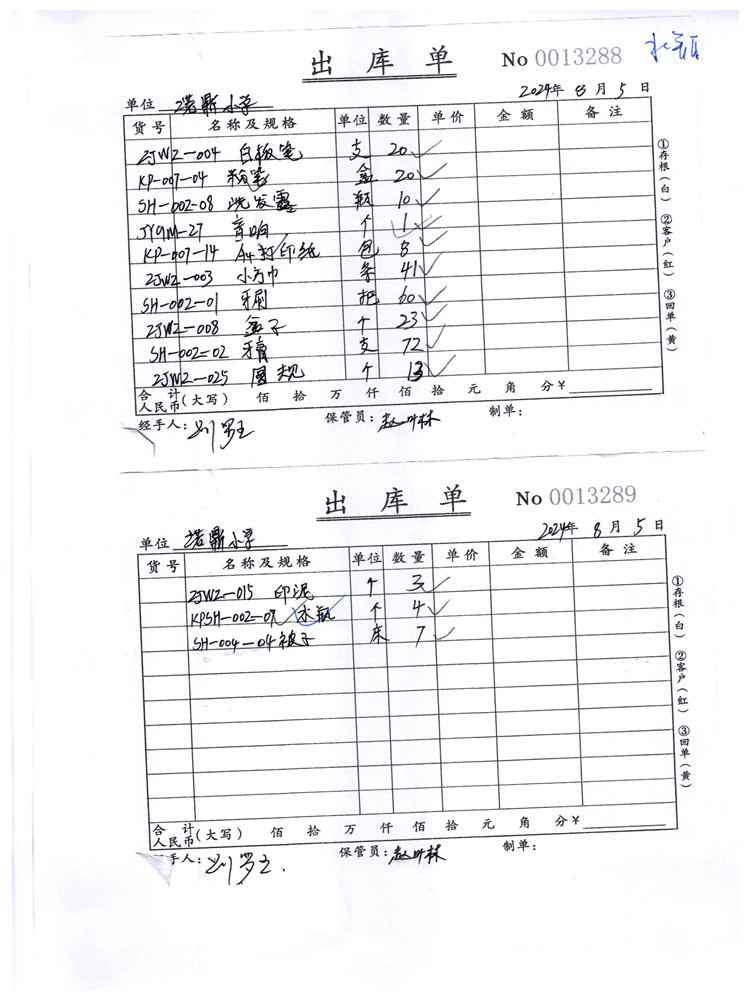 出库单 No 0013288
2024年 8月5日
单位 诺鼎小学
货号 名称及规格 单位 数量 单价 金额 备注
ZJWZ-004 白板笔 支 20 ✓
KP-007-04 粉笔 盒 20 ✓
SH-002-08 洗发露 瓶 10 ✓
JYQM-27 音响 个 1 ✓
KP-007-14 A4打印纸 包 8 ✓
ZJWZ-003 小方巾 条 41 ✓
SH-002-01 牙刷 把 60 ✓
ZJWZ-008 盒子 个 23 ✓
SH-002-02 牙膏 支 72 ✓
ZJWZ-025 圆规 个 13 ✓
合计人民币(大写) 佰 拾 万 仟 佰 拾 元 角 分 ¥
经手人: 保管员: 制单:
①存根(白) ②客户(红) ③回单(黄)
出库单 No 0013289
2024年 8月5日
单位 诺鼎小学
货号 名称及规格 单位 数量 单价 金额 备注
ZJWZ-015 印泥 个 3 ✓
KPSH-002-07 水瓶 个 4 ✓
SH-004-04 被子 床 7 ✓
合计人民币(大写) 佰 拾 万 仟 佰 拾 元 角 分 ¥
手人: 保管员: 制单:
①存根(白) ②客户(红) ③回单(黄)